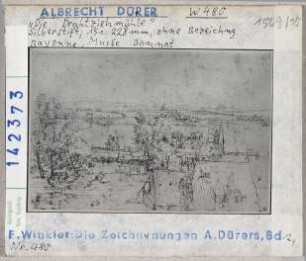 ALBRECHT DÜRER W 480
"Die Drahtziehmühle"
Silberstift, 151:228 mm, ohne Bezeichng
Bayonne, Musée Bonnat
142373
F. Winkler: Die Zeichnungen A. Dürers, Bd.
Nr. 480